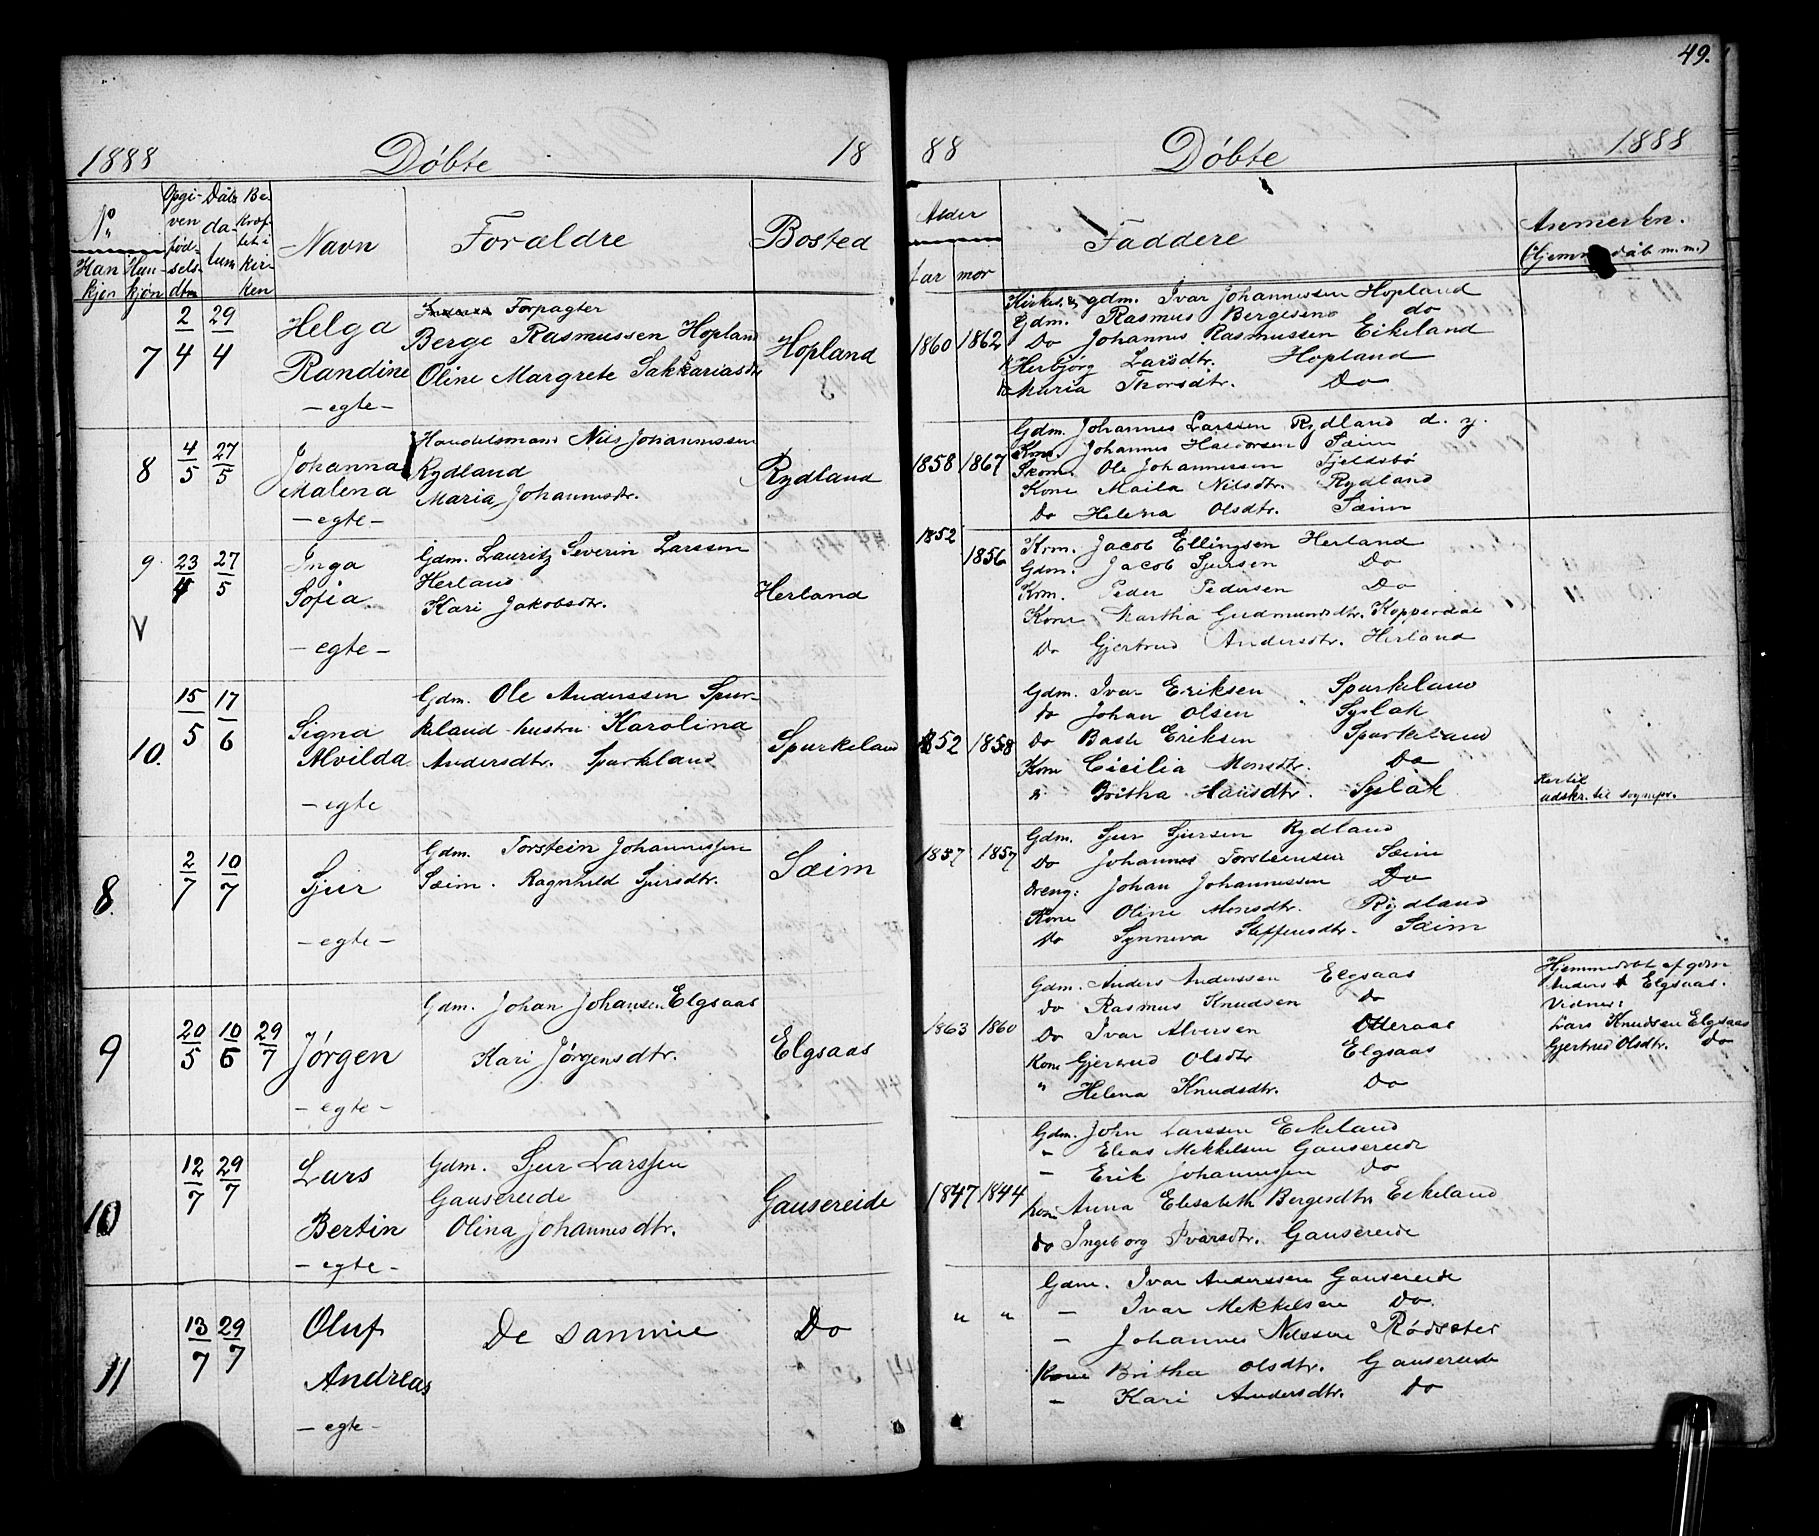 49.
1888 Döbte 18
88 Döbte 1888
No. Opgi- Döbs Be-
ven da- kræf-
föd- tum tet i
sels- kir-
dtm ken
Han Hun-
kjön kjön
Navn Forældre Bosted
Alder
far mor
Faddere
Anmerkn.
(Hjemmedåb m.m.)
7 2/4 29/4
Helga
Randine
- egte -
Forpagter
Berge Rasmussen Hopland
Oline Margrete Sakkariasdtr
Hopland
1860 1862
gdm. Ivar Johannessen Hopland
Gdm. Rasmus Bergesen do
Do Johannes Rasmussen Eikeland
Herbjörg Larsdtr. Hopland
Maria Thorsdtr. Do
8 4/5 27/5
Johanna
Malena
- egte -
Handelsmand Nils Johannessen
Rydland
Maria Johannesdtr.
Rydland
1858 1867
Gdm. Johannes Larssen Rydland d. y.
Johannes Halvorsen Sæim
Ole Johannessen Fjeldsbö
Kone Maila Nilsdtr. Rydland
Do Helena Olsdtr. Sæim
9 23/4 27/5
V
Inga
Sofia
- egte -
Gdm. Lauritz Severin Larssen
Herland
Kari Jakobsdtr.
Herland
1852
1856
Kom. Jacob Ellingsen Herland
Gdm. Jacob Sjursen Do
Kom. Peder Pedersen Do
Kone Martha Gudmundsdtr. Kopperdal
Do Gjertrud Andersdtr. Herland
10. 15/5 17/6
Signa
Alvilda
- egte
Gdm. Ole Anderssen Spur-
keland hustru Karolina
Andersdtr. Sparkland
Spurkeland
1852 1858
Gdm. Ivar Eriksen Spurkeland
do Johan Olsen Syslak
Do Eriksen Spurkeland
Kone Cicilia Monsdtr. Do
" Britha Hansdtr. Syslak
Hertil
adskr. til sognpr.
8. 2/7 10/7
Sjur
- egte -
Gdm. Torstein Johannessen
Sæim. Ragnhild Sjursdtr.
Sæim
1857 1857
Gdm. Sjur Sjursen Rydland
Do Johannes Torsteinsen Sæim
Dreng: Johan Johannessen Do
Kone Oline Monsdtr. Rydland
Do Synneva Steffensdtr. Sæim
9 20/5 10/6 29/7
Jørgen
- egte -
Gdm. Johan Johansen Elgsaas
Kari Jørgensdtr.
Elgsaas
1863 1860
Gdm. Anders Anderssen Elgsaas
do Rasmus Knudsen do
Do Ivar Alversen Otteraae
Kone Gjertrud Olsdtr Elgsaas
" Helena Knudsdtr. Do
Hjemmedöbt af gdm
Anders A Elgsaas.
Vidner:
Lars Knudsen Elgsaas
Gjertrud Olsdtr. Do
10 12/7 29/7
Lars
Bertin
- egte -
Gdm. Sjur Larssen
Gausereide
Olina Johannesdtr.
Gausereide
1847 1844
Gdm. John Larssen Eikeland
- Elias Mikkelsen Gausereide
- Erik Johannessen do
kone Anna Elisabeth Bergesdtr Eikeland
do Ingeborg Ivarsdtr. Gausereide
11 13/7 29/7
Oluf
Andreas
- egte -
De samme
Do
" "
Gdm. Ivar Anderssen Gausereide
- Ivar Mekkelsen Do.
- Johannes Nilssen Rödseter
Kone Britha Olsdtr. Gausereide
- Kari Andersdtr. Do